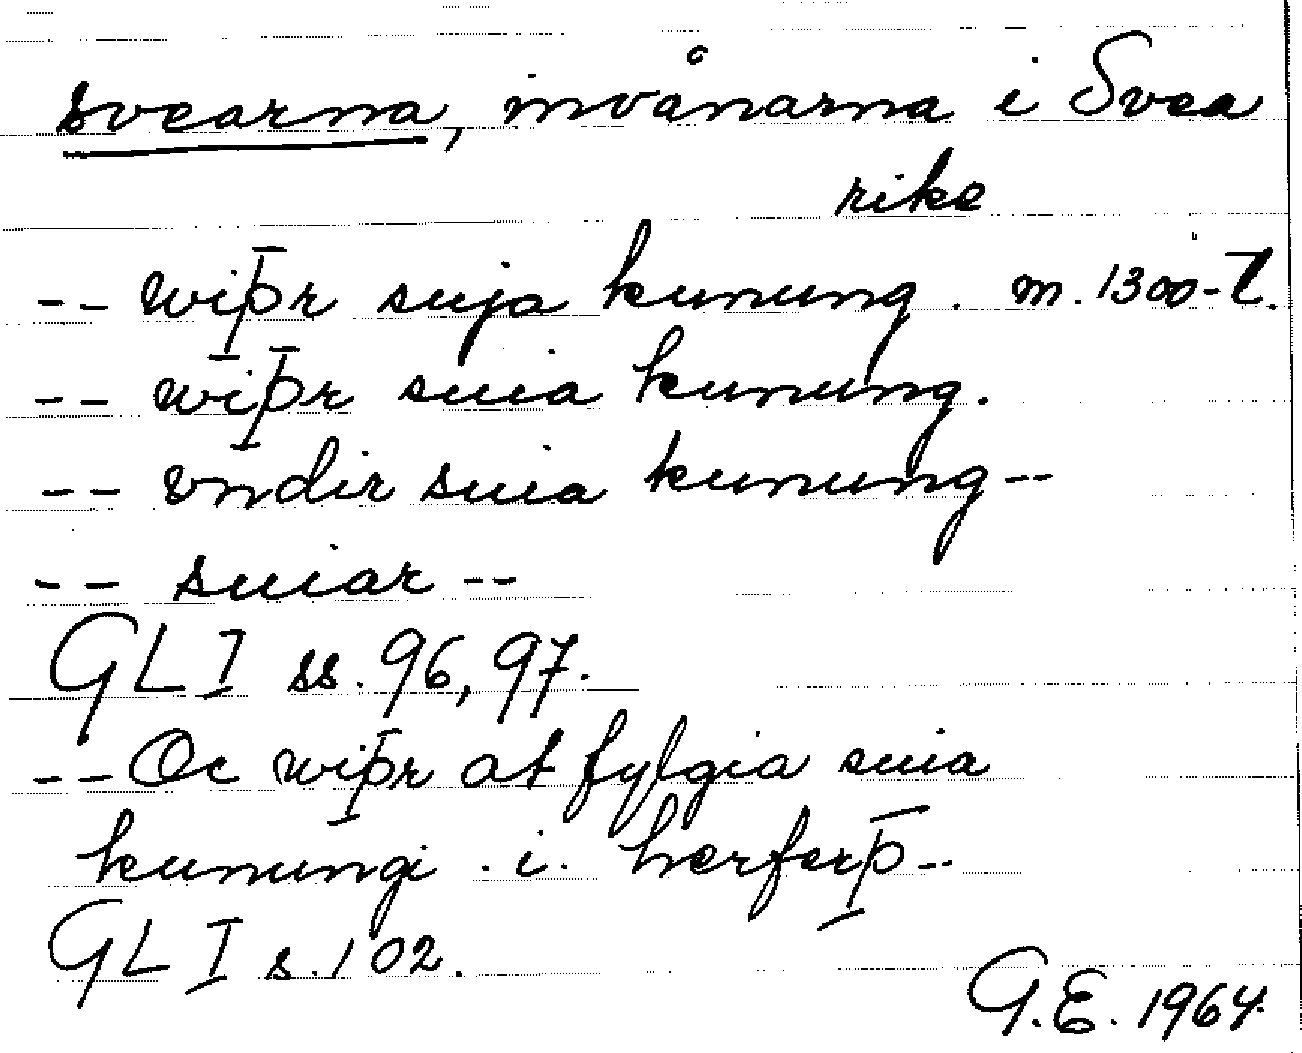 svearna, invånarna i Svea
rike
-- wiþr suja kunung. m. 1300-t.
-- wiþr suia kunung.
-- vndir suia kunung--
-- suiar --
GL I ss. 96, 97.
-- Oc wiþr at fylgia suia
kunungi .i. herferþ--
GL I s. 102.
G.E. 1964.